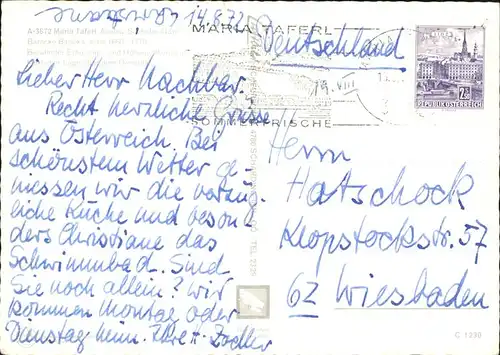 14.8.72
A-3672 Maria Taferl
MARIA TAFERL
SOMMERFRISCHE
19. VIII
REPUBLIK ÖSTERREICH
Deutschland
Lieber Herr Nachbar.
Recht herzliche Grüsse
aus Österreich. Bei
schönstem Wetter ge-
niessen wir die vorzüg-
liche Küche und beson-
ders Christiane das
Schwimmbad. Sind
Sie noch allein? Wir
kommen Montag oder
Dienstag heim. Ihre
Herrn
Hatschock
Klopstockstr. 57
62 Wiesbaden
C 1230